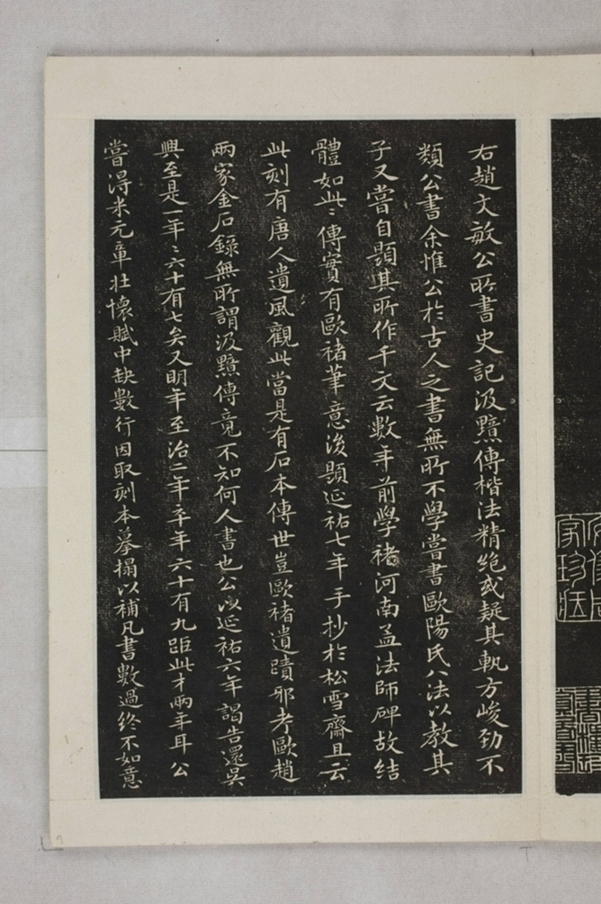 右趙文敏公所書史記汲黯傳楷法精絕或疑其軌方峻勁不
類公書余惟公於古人之書無所不學嘗書歐陽氏八法以教其
子又嘗自題其所作千文云數年前學褚河南孟法師碑故結
體如此此傳實有歐褚筆意後題延祐七年手抄於松雪齋且云
此刻有唐人遺風觀此當是有石本傳世豈歐褚遺蹟邪考歐趙
兩家金石錄無所謂汲黯傳竟不知何人書也公以延祐六年謁告還吳
興至是一年年六十有七矣又明年至治二年卒年六十有九距此才兩年耳公
嘗得米元章壯懷賦中缺數行因取刻本摹搨以補凡書數過終不如意